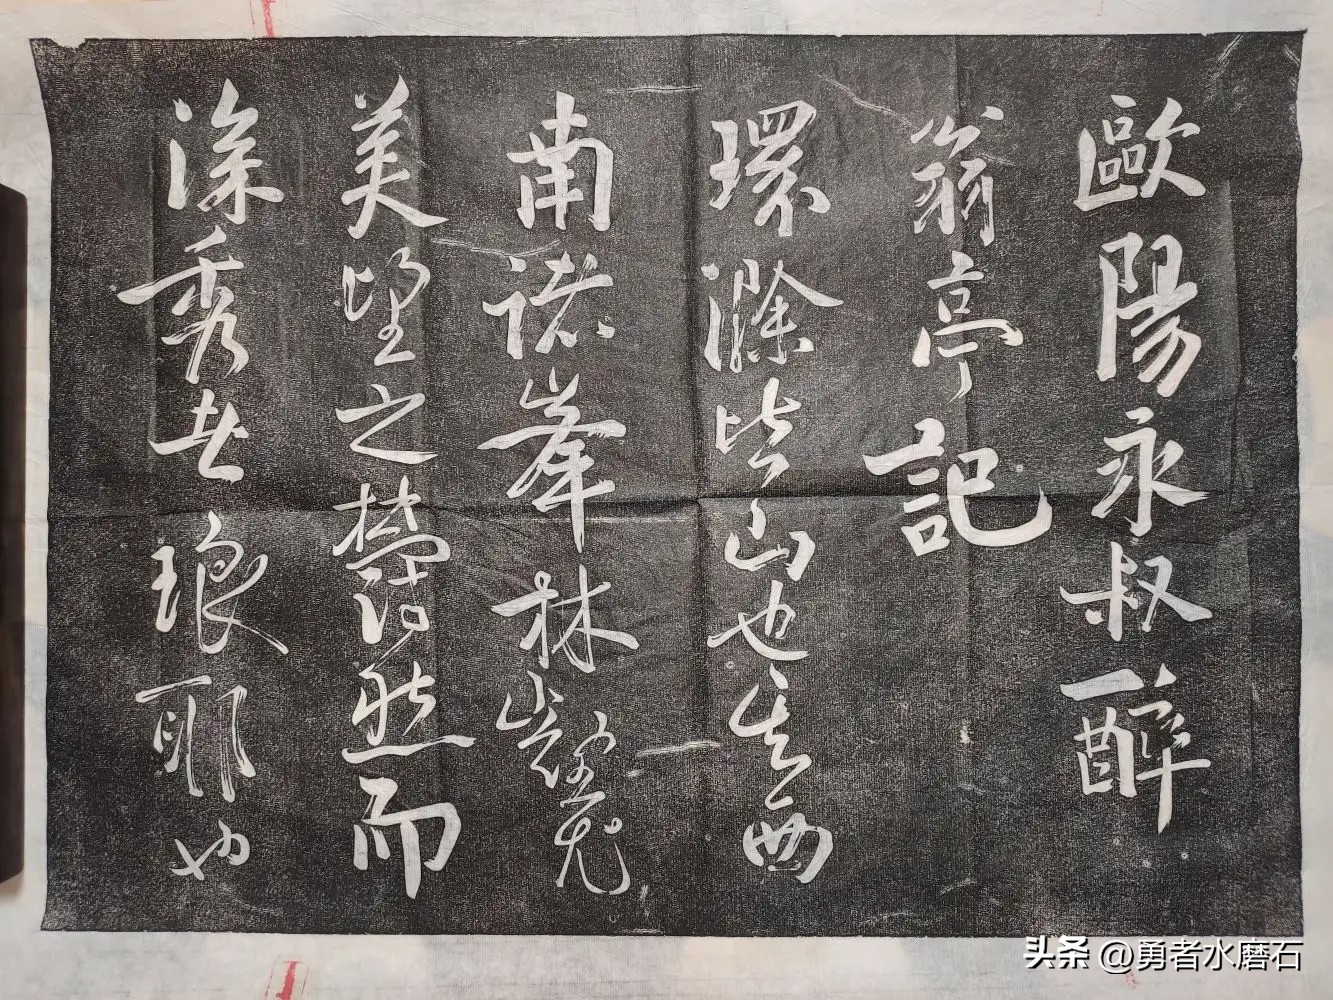 歐陽永叔醉
翁亭記
環滁皆山也其西
南諸峯林壑尤
美望之蔚然而
深秀者琅耶也
头条 @勇者水磨石